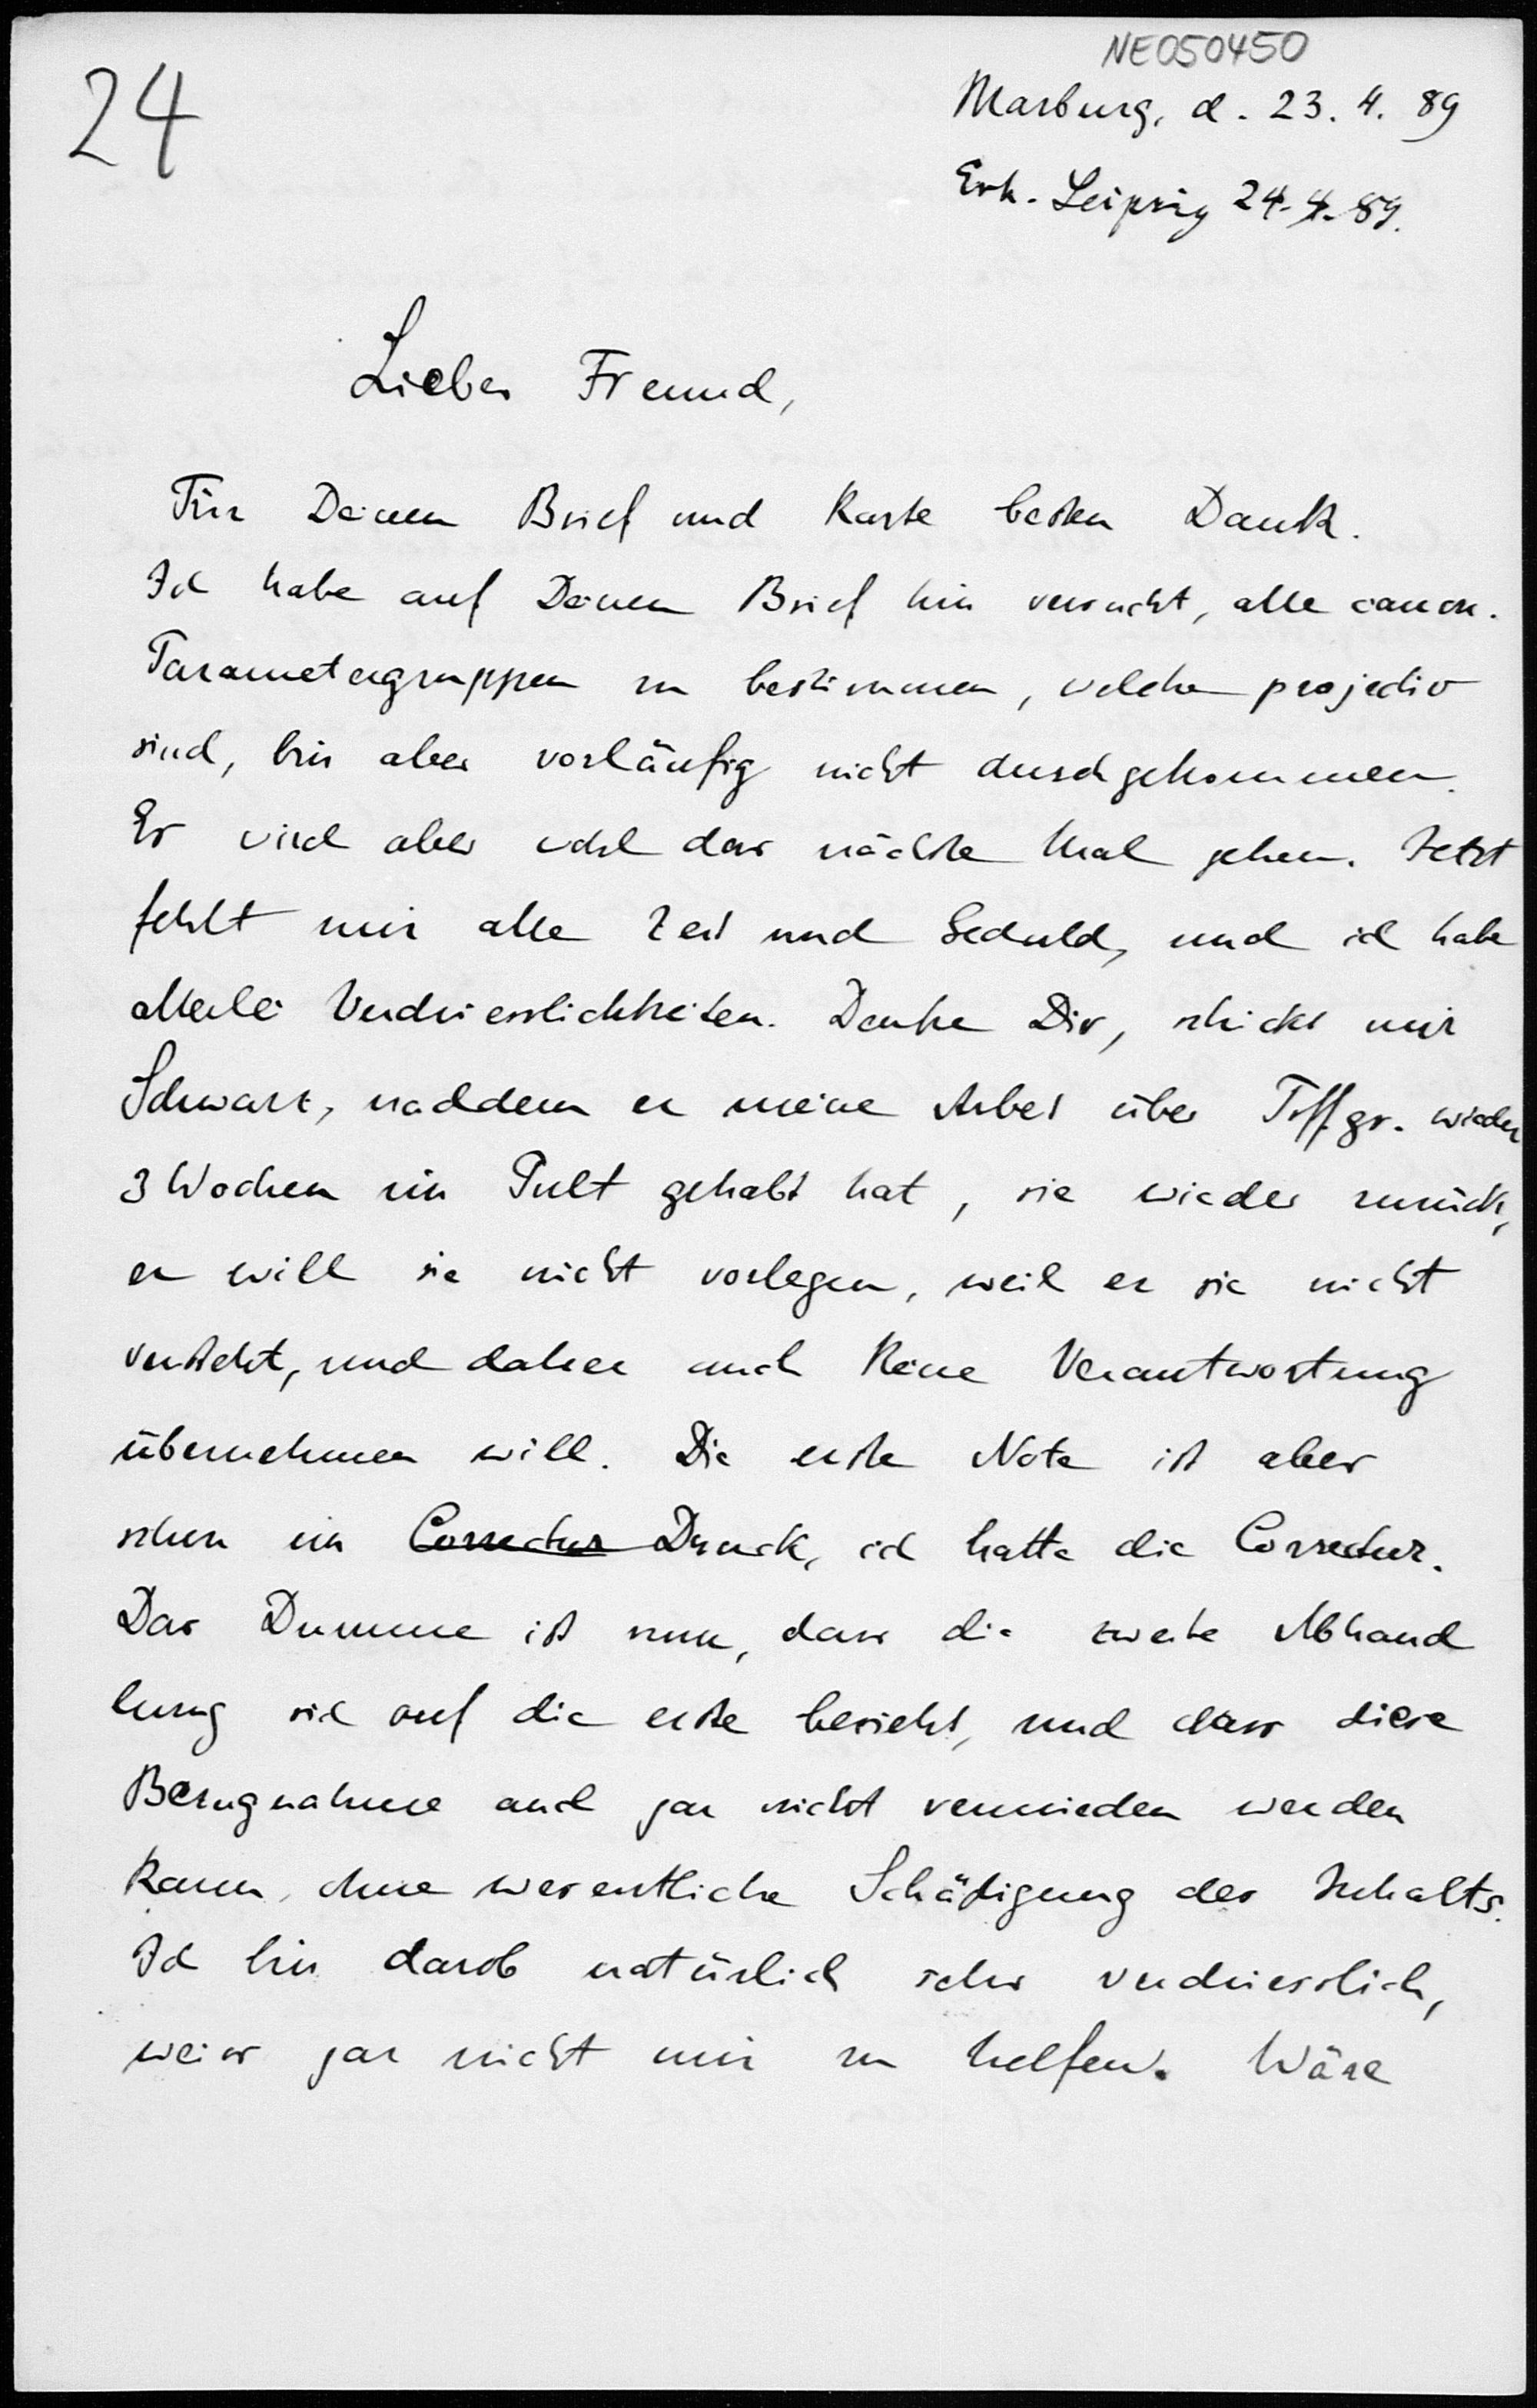 24
NE050450
Marburg, d. 23. 4. 89
Erh. Leipzig 24.4.89.
Lieber Freund,
Für Deinen Brief und Karte besten Dank.
Ich habe auf Deinen Brief hin versucht, alle canon.
Parametergruppen zu bestimmen, welche projectiv
sind, bin aber vorläufig nicht durchgekommen.
Es wird aber wohl das nächste Mal gehen. Jetzt
fehlt mir alle Zeit und Geduld, und ich habe
allerlei Verdriesslichkeiten. Denke Dir, schickt mir
Schwarz, nachdem er meine Arbeit über Trffgr. wieder
3 Wochen im Pult gehabt hat, sie wieder zurück,
er will sie nicht vorlegen, weil er sie nicht
versteht, und daher auch keine Verantwortung
übernehmen will. Die erste Note ist aber
schon im Correctur Druck, ich hatte die Correctur.
Das Dumme ist nun, dass die zweite Abhand
lung sich auf die erste bezieht, und dass diese
Bezugnahme auch gar nicht vermieden werden
kann, ohne wesentliche Schädigung des Inhalts.
Ich bin darob natürlich sehr verdriesslich,
weiss gar nicht mir zu helfen. Wäre